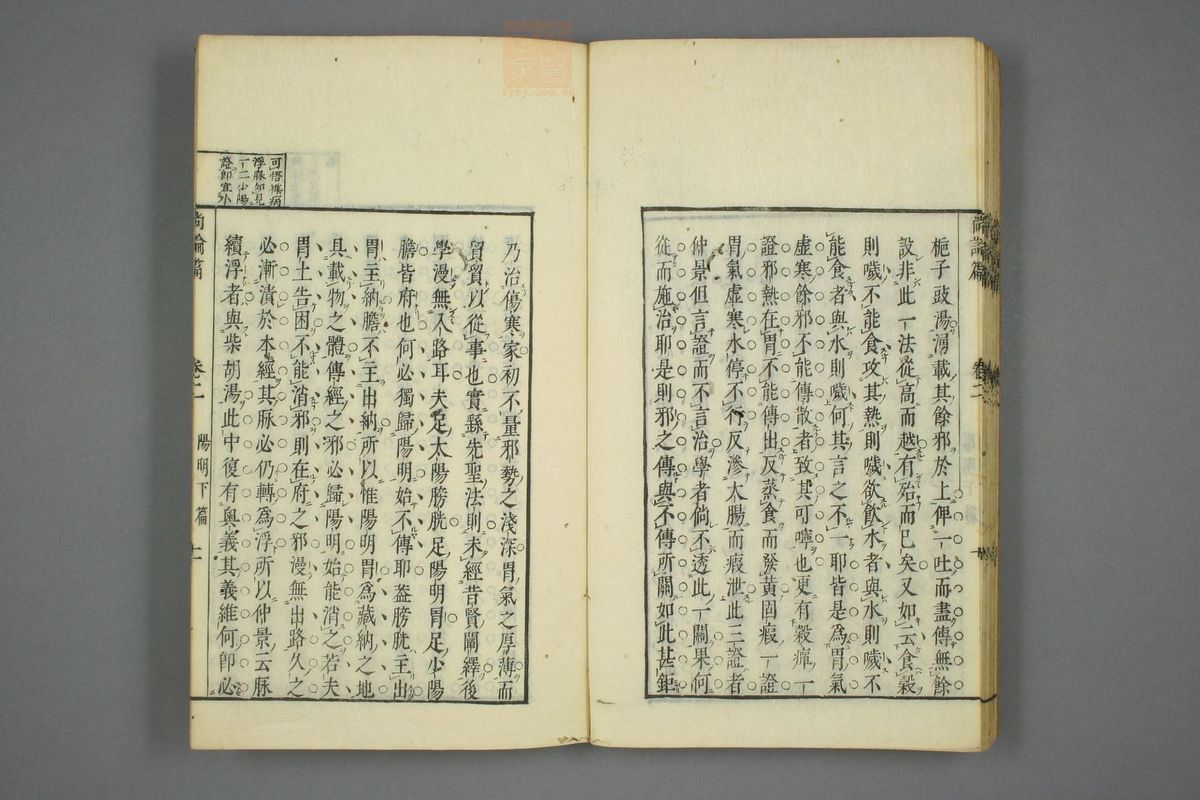 梔子豉湯湧載其餘邪於上俾一吐而盡傳無餘
設非此一法從高而越有殆而已矣又如云食穀
則噦不能食攻其熱則噦欲飲水者與水則噦不
能食者與水則噦何其言之不一耶皆是爲胃氣
虛寒餘邪不能傳散者致其叮嚀也更有穀癉一
證邪熱在胃不能傳出反蒸食而發黃固瘕一證
胃氣虛寒水停不行反滲大腸而瘕泄此三證者
仲景但言證而不言治學者倘不透此一關果何
從而施治耶是則邪之傳與不傳所關如此甚鉅
尚論篇
卷二
一
乃治傷寒家初不量邪勢之淺深胃氣之厚薄而
貿貿以從事也實繇先聖法則未經昔賢闡繹後
學漫無入路耳夫足太陽膀胱足陽明胃足少陽
膽皆府也何必獨歸陽明始不傳耶葢膀胱主出
胃主納膽不主出納所以惟陽明胃爲藏納之地
具載物之體傳經之邪必歸陽明始能消之若夫
胃土告困不能消邪則在府之邪漫無出路久之
必漸漬於本經其脉必仍轉爲浮所以仲景云脉
續浮者與柴胡湯此中復有奧義其義維何卽必
尚論篇
卷二
陽明下篇
二
可悟損病
浮脉如見
一二少陽
證卽宜小
zysj.com.cn